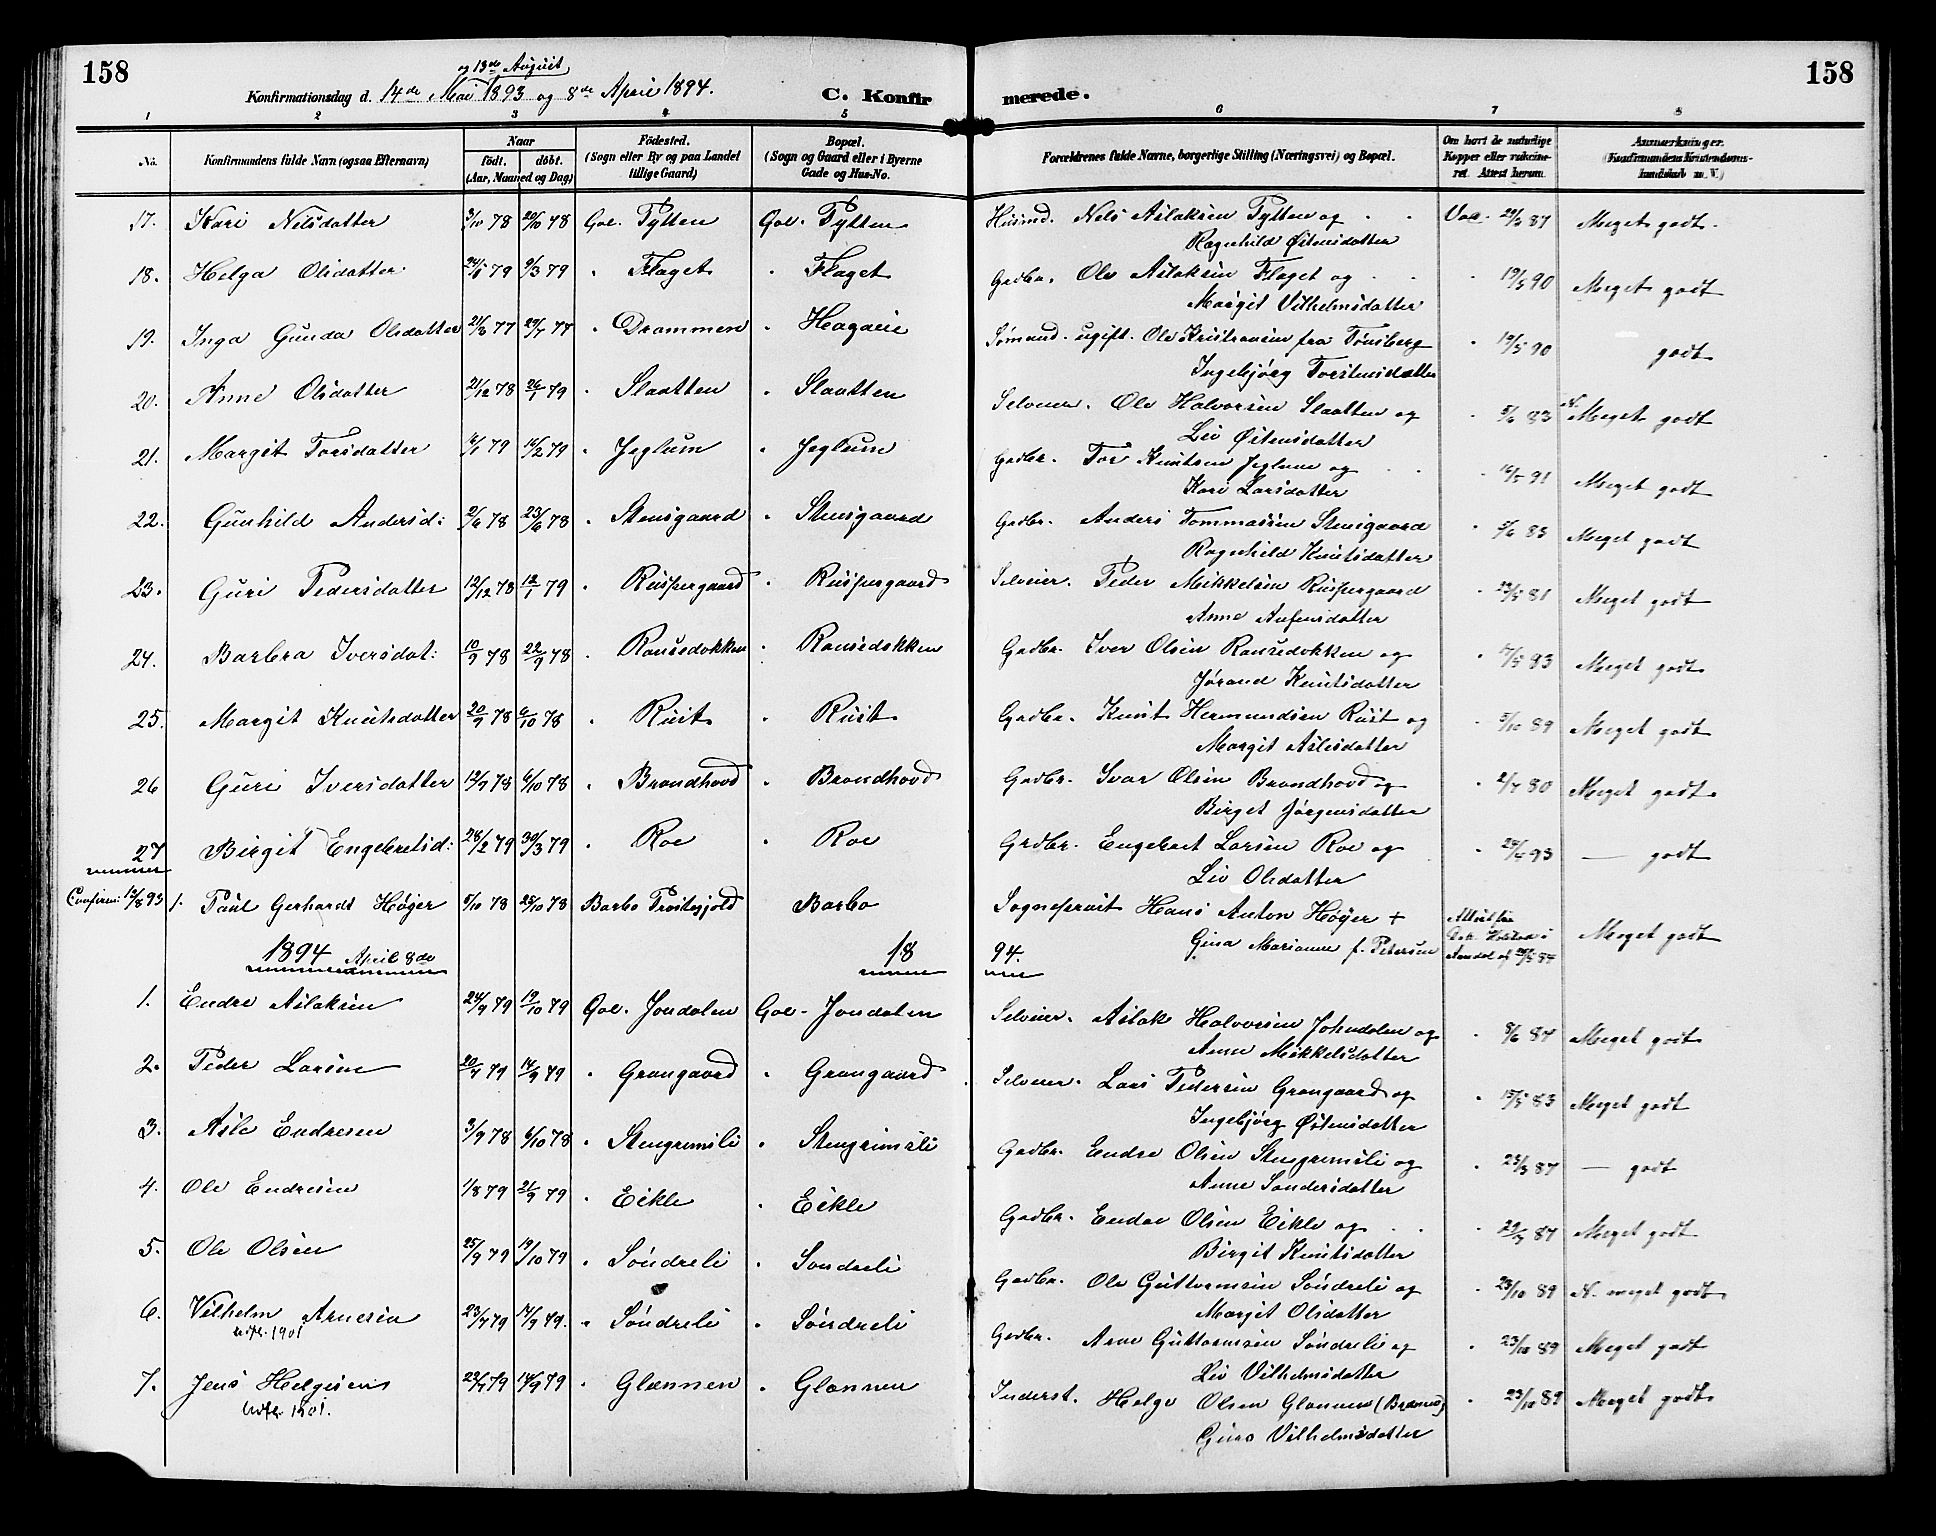 158
158
og 13de August
Konfirmationsdag d. 14de Mai 1893 og 8de April 1894.
C. Konfirmerede.
1 2 3 4 5 6 7 8
No.
Konfirmandens fulde Navn (ogsaa Efternavn)
Naar
født. døbt.
(Aar, Maaned og Dag)
Fødested.
(Sogn eller By og paa Landet
tillige Gaard)
Bopæl.
(Sogn og Gaard eller i Byerne
Gade og Hus-No.
Forældrenes fulde Navne, borgerlige Stilling (Næringsvei) og Bopæl.
Om havt de naturlige
Kopper eller vakcine-
ret. Attest herom.
Anmærkninger.
(Konfirmandens Kristendoms-
kundskab m. V.)
17. Kari Nilsdatter 3/10 78 20/10 78 Gol. Tytten Gol. Tytten Husmd. Nils Aslaksen Tytten og Vac. 29/3 87 Meget godt.
Ragnhild Østensdatter
18. Helga Olsdatter 24/1 79 9/3 79 " Flaget " Flaget Grdbr. Ole Aslaksen Flaget og " 19/5 90 Meget godt
Margit Vilhelmsdatter
19. Inga Gunda Olsdatter 21/3 77 29/7 77 " Drammen " Hagaeie Sømand. ugift. Ole Kristiansen fra Tønsberg " 19/5 90 godt
Ingebjørg Torstensdatter
20. Anne Olsdatter 21/12 78 26/1 79 " Slaatten " Slaatten Selveier. Ole Halvorsen Slaatten og " 5/6 83 N. Meget godt
Liv Østensdatter
21. Margit Torsdatter 6/1 79 16/2 79 " Jeglum " Jeglum Grdbr. Tor Knutsen Jeglum og " 16/5 91 Meget godt
Kari Larsdatter
22. Gunhild Andersd: 2/6 78 23/6 78 " Stensgaard " Stensgaard Grdbr. Anders Tommassen Stensgaard " 5/6 83 Meget godt
Ragnhild Knutsdatter
23. Guri Pedersdatter 12/12 78 12/1 79 " Ruspergaard " Ruspergaard Selveier. Peder Mikkelsen Ruspergaard " 23/5 81 Meget godt
Anne Anfinsdatter
24. Barbra Iversdat: 10/9 78 22/9 78 " Rousedokken " Rousedokken Grdbr. Iver Olsen Rousedokken og " 17/5 83 Meget godt
Jørand Knutsdatter
25. Margit Knutsdatter 20/9 78 6/10 78 " Rust " Rust Grdbr. Knut Hermundsen Rust og " 5/10 89 Meget godt
Margit Aslesdatter
26 Guri Iversdatter 12/9 78 6/10 78 " Brandhovd " Brandhovd Grdbr. Ivar Olsen Brandhovd og " 2/7 80 Meget godt.
Birget Jørgensdatter
27 Birgit Engebretsd: 28/2 79 30/3 79 " Roe " Roe Grdbr. Engebret Larsen Roe og " 29/4 93 — godt
Liv Olsdatter
Confirm: 13/8 93 1. Paul Gerhardt Høyer 5/10 78 25/10 78 Barbo Barbo Sogneprest Hans Anton Høyer + Attest fra Meget godt
Gina Marianne f. Petersen Arendal af 84
1894 April 8de 18 94.
1. Endre Aslaksen 24/9 79 19/10 79 Gol. Jondalen Gol. Jondalen Selveier. Aslak Halvorsen Johndalen og " 8/6 87 Meget godt
Anne Mikkelsdatter
2. Peder Larsen 20/7 79 14/9 79 " Grangaard " Grangaard Selveier. Lars Pedersen Grangaard og " 15/5 83 Meget godt
Ingebjørg Østensdatter
3. Asle Endresen 3/9 78 6/10 78 " Stengrimsli " Stengrimsli Grdbr. Endre Olsen Stengrimsli og " 23/3 87 — godt
Anne Sandersdatter
4. Ole Endresen 1/8 79 21/9 79 " Eikle " Eikle Grdbr. Endre Olsen Eikle og " 22/3 87 Meget godt
Birgit Knutsdatter
5. Ole Olsen 25/9 79 19/10 79 " Søndreli " Søndreli Grdbr. Ole Guttormsen Søndreli og " 23/10 89 N. meget godt
Margit Olsdatter
6. Vilhelm Arnesen 23/7 79 14/9 79. " Søndreli " Søndreli Grdbr. Arne Guttormsen Søndreli og " 23/10 89 Meget godt
utfl. 1901 Liv Vilhelmsdatter
7. Jens Helgesen 22/7 79 14/9 79 " Glænnen " Glænnen Inderst. Helge Olsen Glænnen " 23/10 89 Meget godt
Utfl. 1901. Guro Vilhelmsdatter